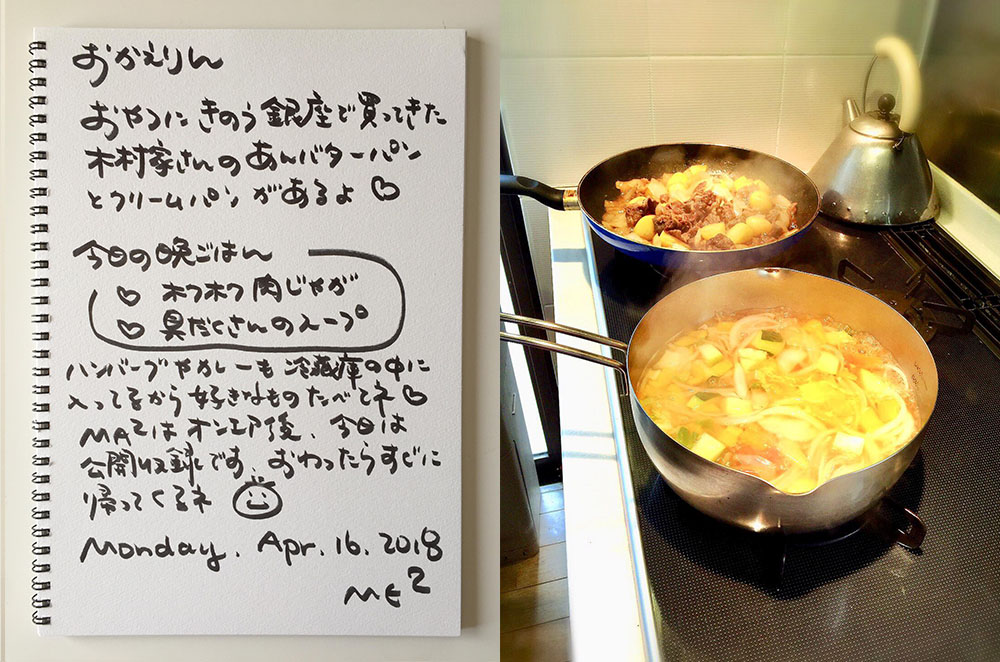 おかえりん
おやつにきのう銀座で買ってきた
木村家さんのあんバターパン
とクリームパンがあるよ♡
今日の晩ごはん
♡ ホクホク肉じゃが
♡ 具だくさんのスープ
ハンバーグやカレーも冷蔵庫の中に
入ってるから好きなものたべてネ♡
はオンエア後、今日は
公開収録です。おわったらすぐに
帰ってくるネ
Monday, Apr. 16. 2018